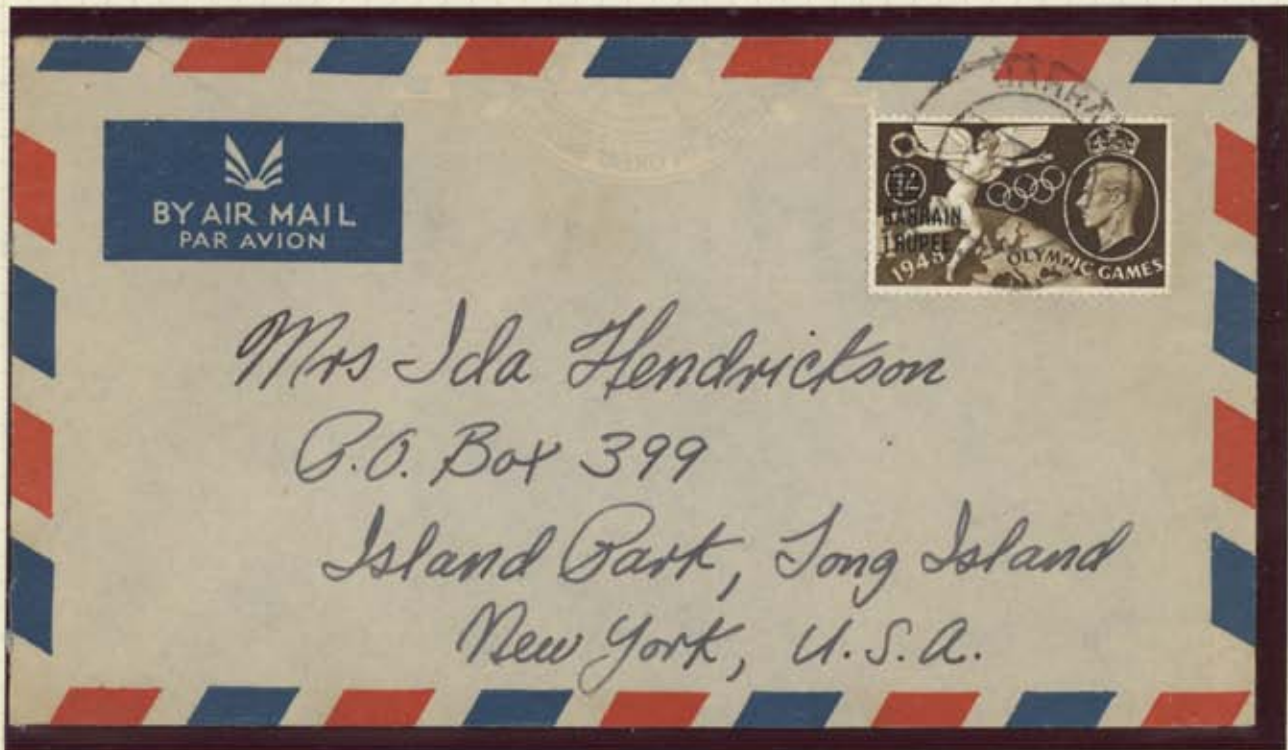 BY AIR MAIL
PAR AVION
BAHRAIN
1 RUPEE
1948
OLYMPIC GAMES
Mrs Ida Hendrickson
P.O. Box 399
Island Park, Long Island
New York, U.S.A.